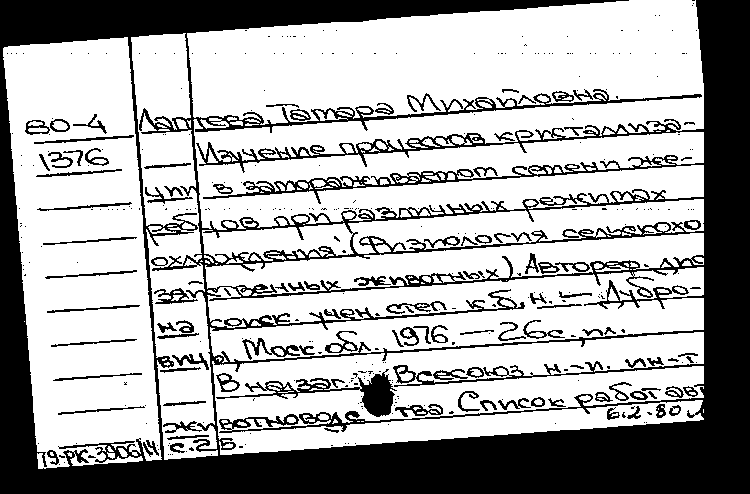 80-4 Лаптева, Тамара Михайловна.
1376 Изучение процессов кристаллиза-
ции в замораживаемом семени же-
ребцов при различных режимах
охлаждения: (Физиология сельскохо
зяйственных животных). Автореф. дис
на соиск. учен. степ. к.б.н. — Дубро-
вицы, Моск. обл., 1976. — 26с., ил.
В надзаг.: Всесоюз. н.-и. ин-т
животноводства. Список работ авт
с.25. 6.2.80
79-РК-3906/14